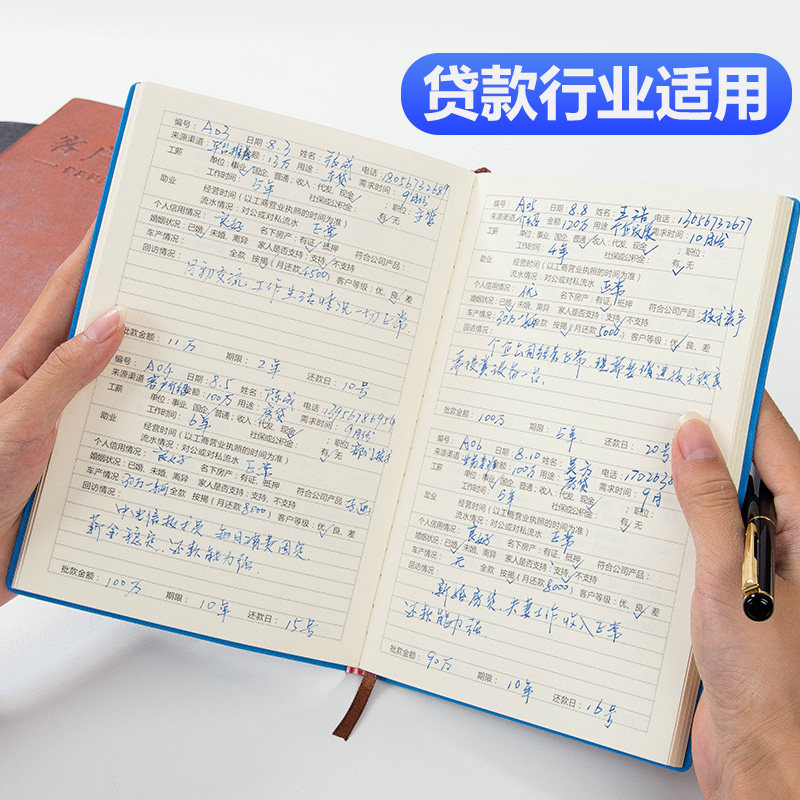 贷款行业适用
客户
编号： A03 日期 8.3 姓名： 电话 18056732689
来源渠道： 金额： 13万 用途 车贷 需求时间：9月份
工薪 单位：事业/国企、普通；收入：代发、现金 ；职位：
工作时间： 5年 社保或公积金： 有、无
助业 经营时间（以工商营业执照的时间为准）
流水情况：对公或对私流水 正常
个人信用情况： 良好 名下房产：有证/抵押 符合公司产品：
婚姻状况：已婚、未婚、离异 家人是否支持：支持、不支持
车产情况： 全款 按揭（月还款4500） 客户等级：优、良、差
回访情况：
月初交流，工作生活情况一切正常.
批款金额： 11万 期限： 2年 还款日： 10号
编号： A04 日期： 8.5 姓名： 电话 13956786954
来源渠道 金额： 100万 用途： 房贷 需求时间： 9月份
工薪 单位：事业、国企、普通；收入：代发、现金 ；职位：
工作时间： 6年 社保或公积金： 有、无
助业 经营时间（以工商营业执照的时间为准）
流水情况：对公或对私流水 正常
个人信用情况： 良好 名下房产：有证、抵押
婚姻状况：已婚、未婚、离异 家人是否支持：支持、不支持 符合公司产品：
车产情况： 30万一辆 全款 按揭（月还款8000） 客户等级：优、良、差
回访情况：
薪金稳定，还款能力强
批款金额： 100万 期限： 10年 还款日： 15号
编号： A05 日期 8.8 姓名： 王浩 电话：
来源渠道： 金额 120万 用途 需求时间： 10月份
工薪 单位：事业、国企、普通；收入：代发、现金 ；职位：
工作时间： 4年 社保或公积金： 有、无
助业 经营时间（以工商营业执照的时间为准）
流水情况：对公或对私流水 正常
个人信用情况： 优 名下房产：有证、抵押 符合公司产品：
婚姻状况：已婚、未婚、离异 家人是否支持：支持/不支持
车产情况： 全款 按揭（月还款5000） 客户等级：优、良、差
回访情况：
批款金额： 100万 期限： 5年 还款日： 20号
编号： A06 日期： 8.10 姓名： 吴方 电话：
来源渠道： 金额： 100万 用途： 房贷 需求时间： 9月
工薪 单位：事业、国企、普通；收入：代发、现金 ；职位：
工作时间： 5年 社保或公积金： 有、无
助业 经营时间（以工商营业执照的时间为准）
流水情况：对公或对私流水 正常
个人信用情况： 良好 名下房产：有证、抵押
婚姻状况：已婚、未婚、离异 家人是否支持：支持、不支持 符合公司产品：
车产情况： 无 全款 按揭（月还款8000） 客户等级：优、良、差
回访情况：
新婚房贷，夫妻工作收入正常
还款能力强
批款金额： 90万 期限： 10年 还款日： 16号